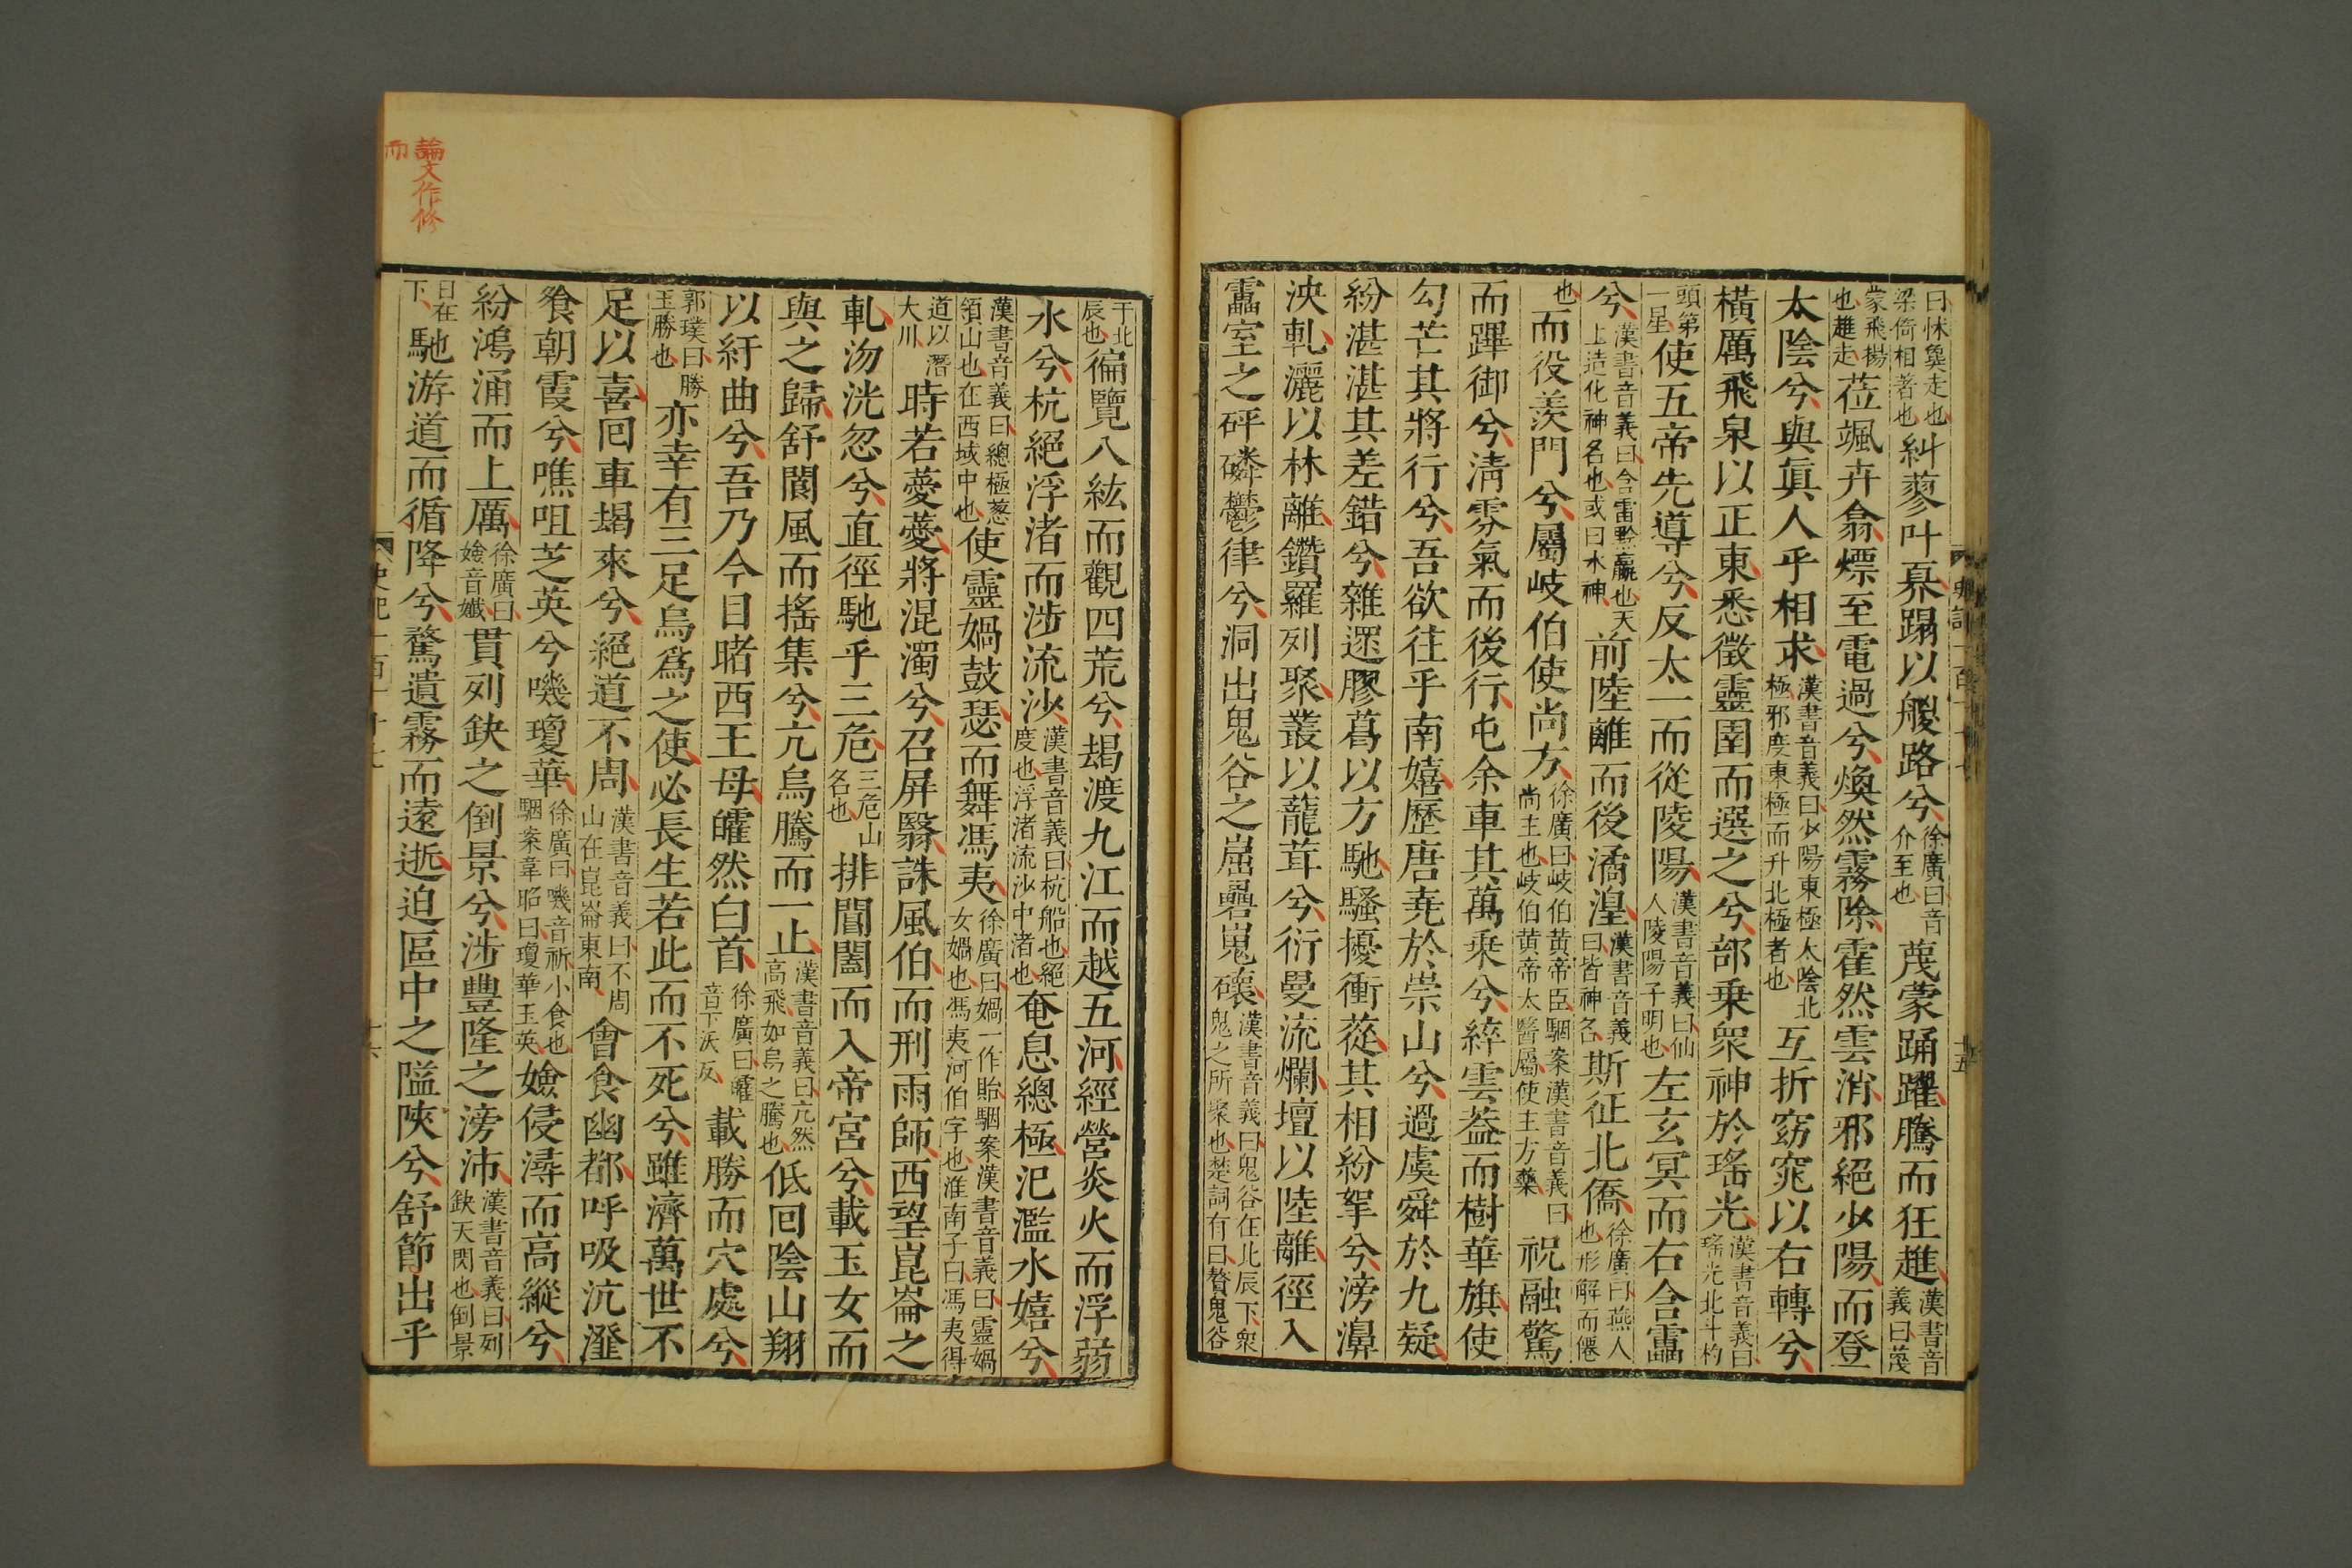 曰怵㚟走也
梁倚相著也糾蓼叶奡蹋以艐路兮徐廣曰音介至也蔑蒙踊躍騰而狂趡漢書音義曰蔑
蒙飛揚也趡走莅颯卉翕熛至電過兮煥然霧除霍然雲消邪絕少陽而登
太陰兮與眞人乎相求漢書音義曰少陽東極太陰北極邪度東極而升北極者也互折窈窕以右轉兮
橫厲飛泉以正東悉徵靈圉而選之兮部乘衆神於瑤光漢書音義曰瑤光北斗杓
頭第一星使五帝先導兮反太一而從陵陽漢書音義曰仙人陵陽子明也左玄冥而右含靁
兮漢書音義曰含雷黔羸也天上造化神名也或曰水神前陸離而後潏湟漢書音義曰皆神名斯征北僑徐廣曰燕人也形解而僊
也而役羨門兮屬岐伯使尚方徐廣曰岐伯黃帝臣駰案漢書音義曰尚主也岐伯黃帝太醫屬使主方藥祝融驚
而蹕御兮淸雰氣而後行屯余車其萬乘兮綷雲葢而樹華旗使
勾芒其將行兮吾欲往乎南嬉歷唐堯於崇山兮過虞舜於九疑
紛湛湛其差錯兮雜遝膠葛以方馳騷擾衝蓯其相紛挐兮滂濞
泱軋灑以林離鑽羅列聚叢以蘢茸兮衍曼流爛壇以陸離徑入
靁室之砰磷鬱律兮洞出鬼谷之崫礨嵬礧漢書音義曰鬼谷在北辰下衆鬼之所聚也楚詞有曰贅鬼谷
于北辰也徧覽八紘而觀四荒兮朅渡九江而越五河經營炎火而浮弱
水兮杭絕浮渚而涉流沙漢書音義曰杭船也絕度也浮渚流沙中渚也奄息總極氾濫水嬉兮
漢書音義曰總極葱領山也在西域中也使靈媧鼓瑟而舞馮夷徐廣曰媧一作貽駰案漢書音義曰靈媧女媧也馮夷河伯字也淮南子曰馮夷得
道以潛大川時若薆薆將混濁兮召屏翳誅風伯而刑雨師西望崑崙之
軋沕洸忽兮直徑馳乎三危三危山名也排閶闔而入帝宮兮載玉女而
與之歸舒閬風而搖集兮亢烏騰而一止漢書音義曰亢然高飛如烏之騰也低回陰山翔
以紆曲兮吾乃今日睹西王母皬然白首徐廣曰皬音下沃反載勝而穴處兮
郭璞曰勝玉勝也亦幸有三足烏爲之使必長生若此而不死兮雖濟萬世不
足以喜回車朅來兮絕道不周漢書音義曰不周山在崑崙東南會食幽都呼吸沆瀣
飡朝霞兮噍咀芝英兮嘰瓊華徐廣曰嘰音祈小食也駰案韋昭曰瓊華玉英嬐侵潯而高縱兮
紛鴻涌而上厲徐廣曰嬐音孅貫列缺之倒景兮涉豐隆之滂沛漢書音義曰列缺天閃也倒景
日在下馳游道而循降兮騖遺霧而遠逝迫區中之隘陜兮舒節出乎
論文作修
而